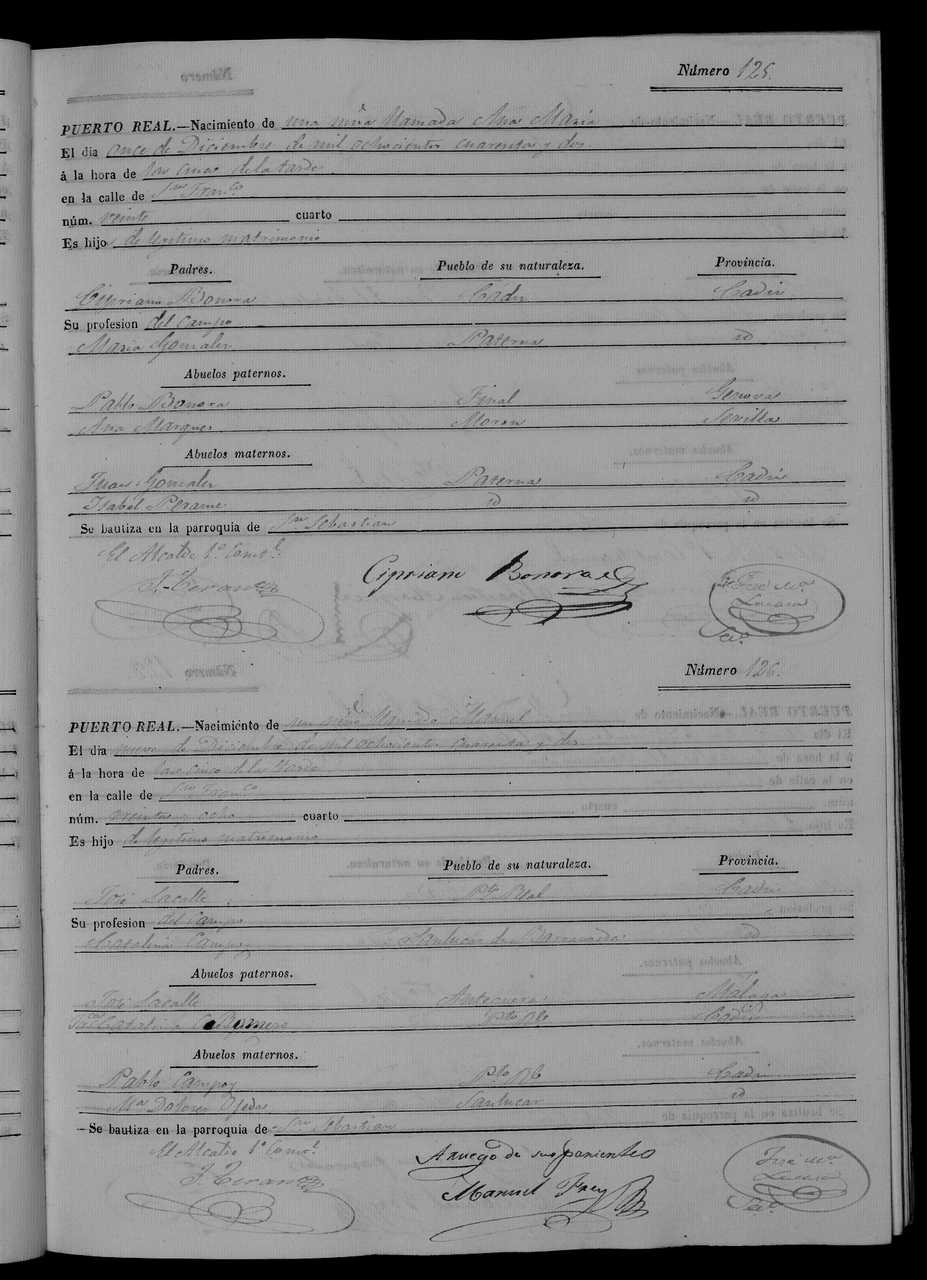 Número 125.
PUERTO REAL.—Nacimiento de una niña llamada Ana Maria
El dia once de Diciembre de mil ochocientos cuarenta y dos
á la hora de las cinco de la tarde
en la calle de Sn Franco
núm. veinte cuarto
Es hijo de legitimo matrimonio
Padres. Pueblo de su naturaleza. Provincia.
Cipriano Bonora Cadiz Cadiz
Su profesion del campo
Maria Gonzalez Paterna id
Abuelos paternos.
Pablo Bonora Final Genova
Ana Marquez Moron Sevilla
Abuelos maternos.
Juan Gonzalez Paterna Cadiz
Isabel id id
Se bautiza en la parroquia de Sn Sebastian
El Alcalde 1º Consl.
J. Teran
Cipriano Bonora
José Mª
Lucara
Srio.
Número 126.
PUERTO REAL.—Nacimiento de un niño llamado Manuel
El dia nueve de Diciembre de mil ochocientos cuarenta y dos
á la hora de las cinco de la tarde
en la calle de Sn Franco
núm. veinte y ocho cuarto
Es hijo de legitimo matrimonio
Padres. Pueblo de su naturaleza. Provincia.
José Lacalle Pto Real Cadiz
Su profesion del campo
Catalina Campoy Sanlucar de Barrameda id
Abuelos paternos.
José Lacalle Antequera Malaga
Catalina Romero Pto Rl Cadiz
Abuelos maternos.
Pablo Campoy Pto Rl Cadiz
Mª Dolores Ojeda Sanlucar id
Se bautiza en la parroquia de Sn Sebastian
El Alcalde 1º Consl.
J. Teran
A ruego de sus parientes
Manuel Frey
José Mª
Lucara
Srio.